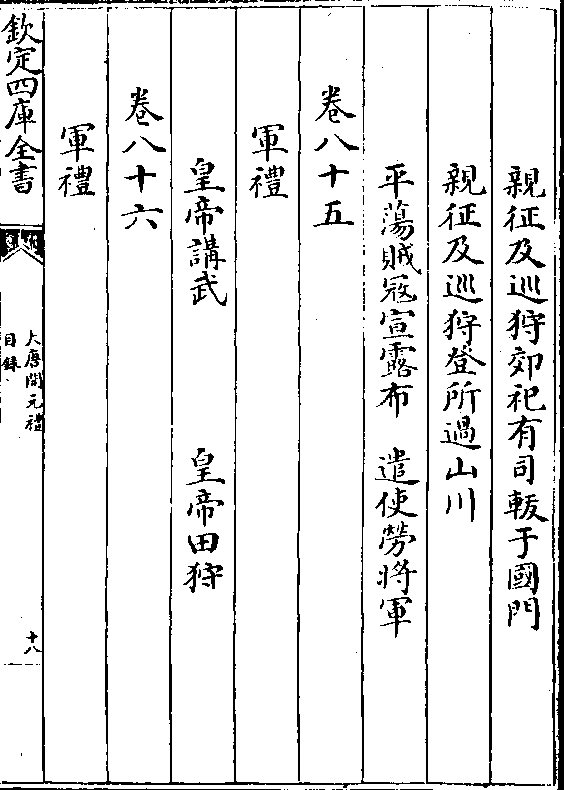 親征及巡狩郊祀有司軷于國門
親征及巡狩登所過山川
平蕩賊寇宣露布　遣使勞將軍
卷八十五
軍禮
皇帝講武　皇帝田狩
卷八十六
軍禮
欽定四庫全書
大唐開元禮
目錄
十八